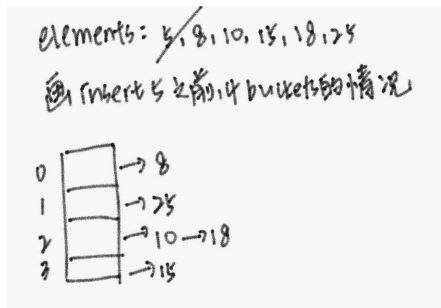 elements: 5, 8, 10, 15, 18, 25
画 insert 5 之前, 4 buckets的情况
0 → 8
1 → 25
2 → 10 → 18
3 → 15